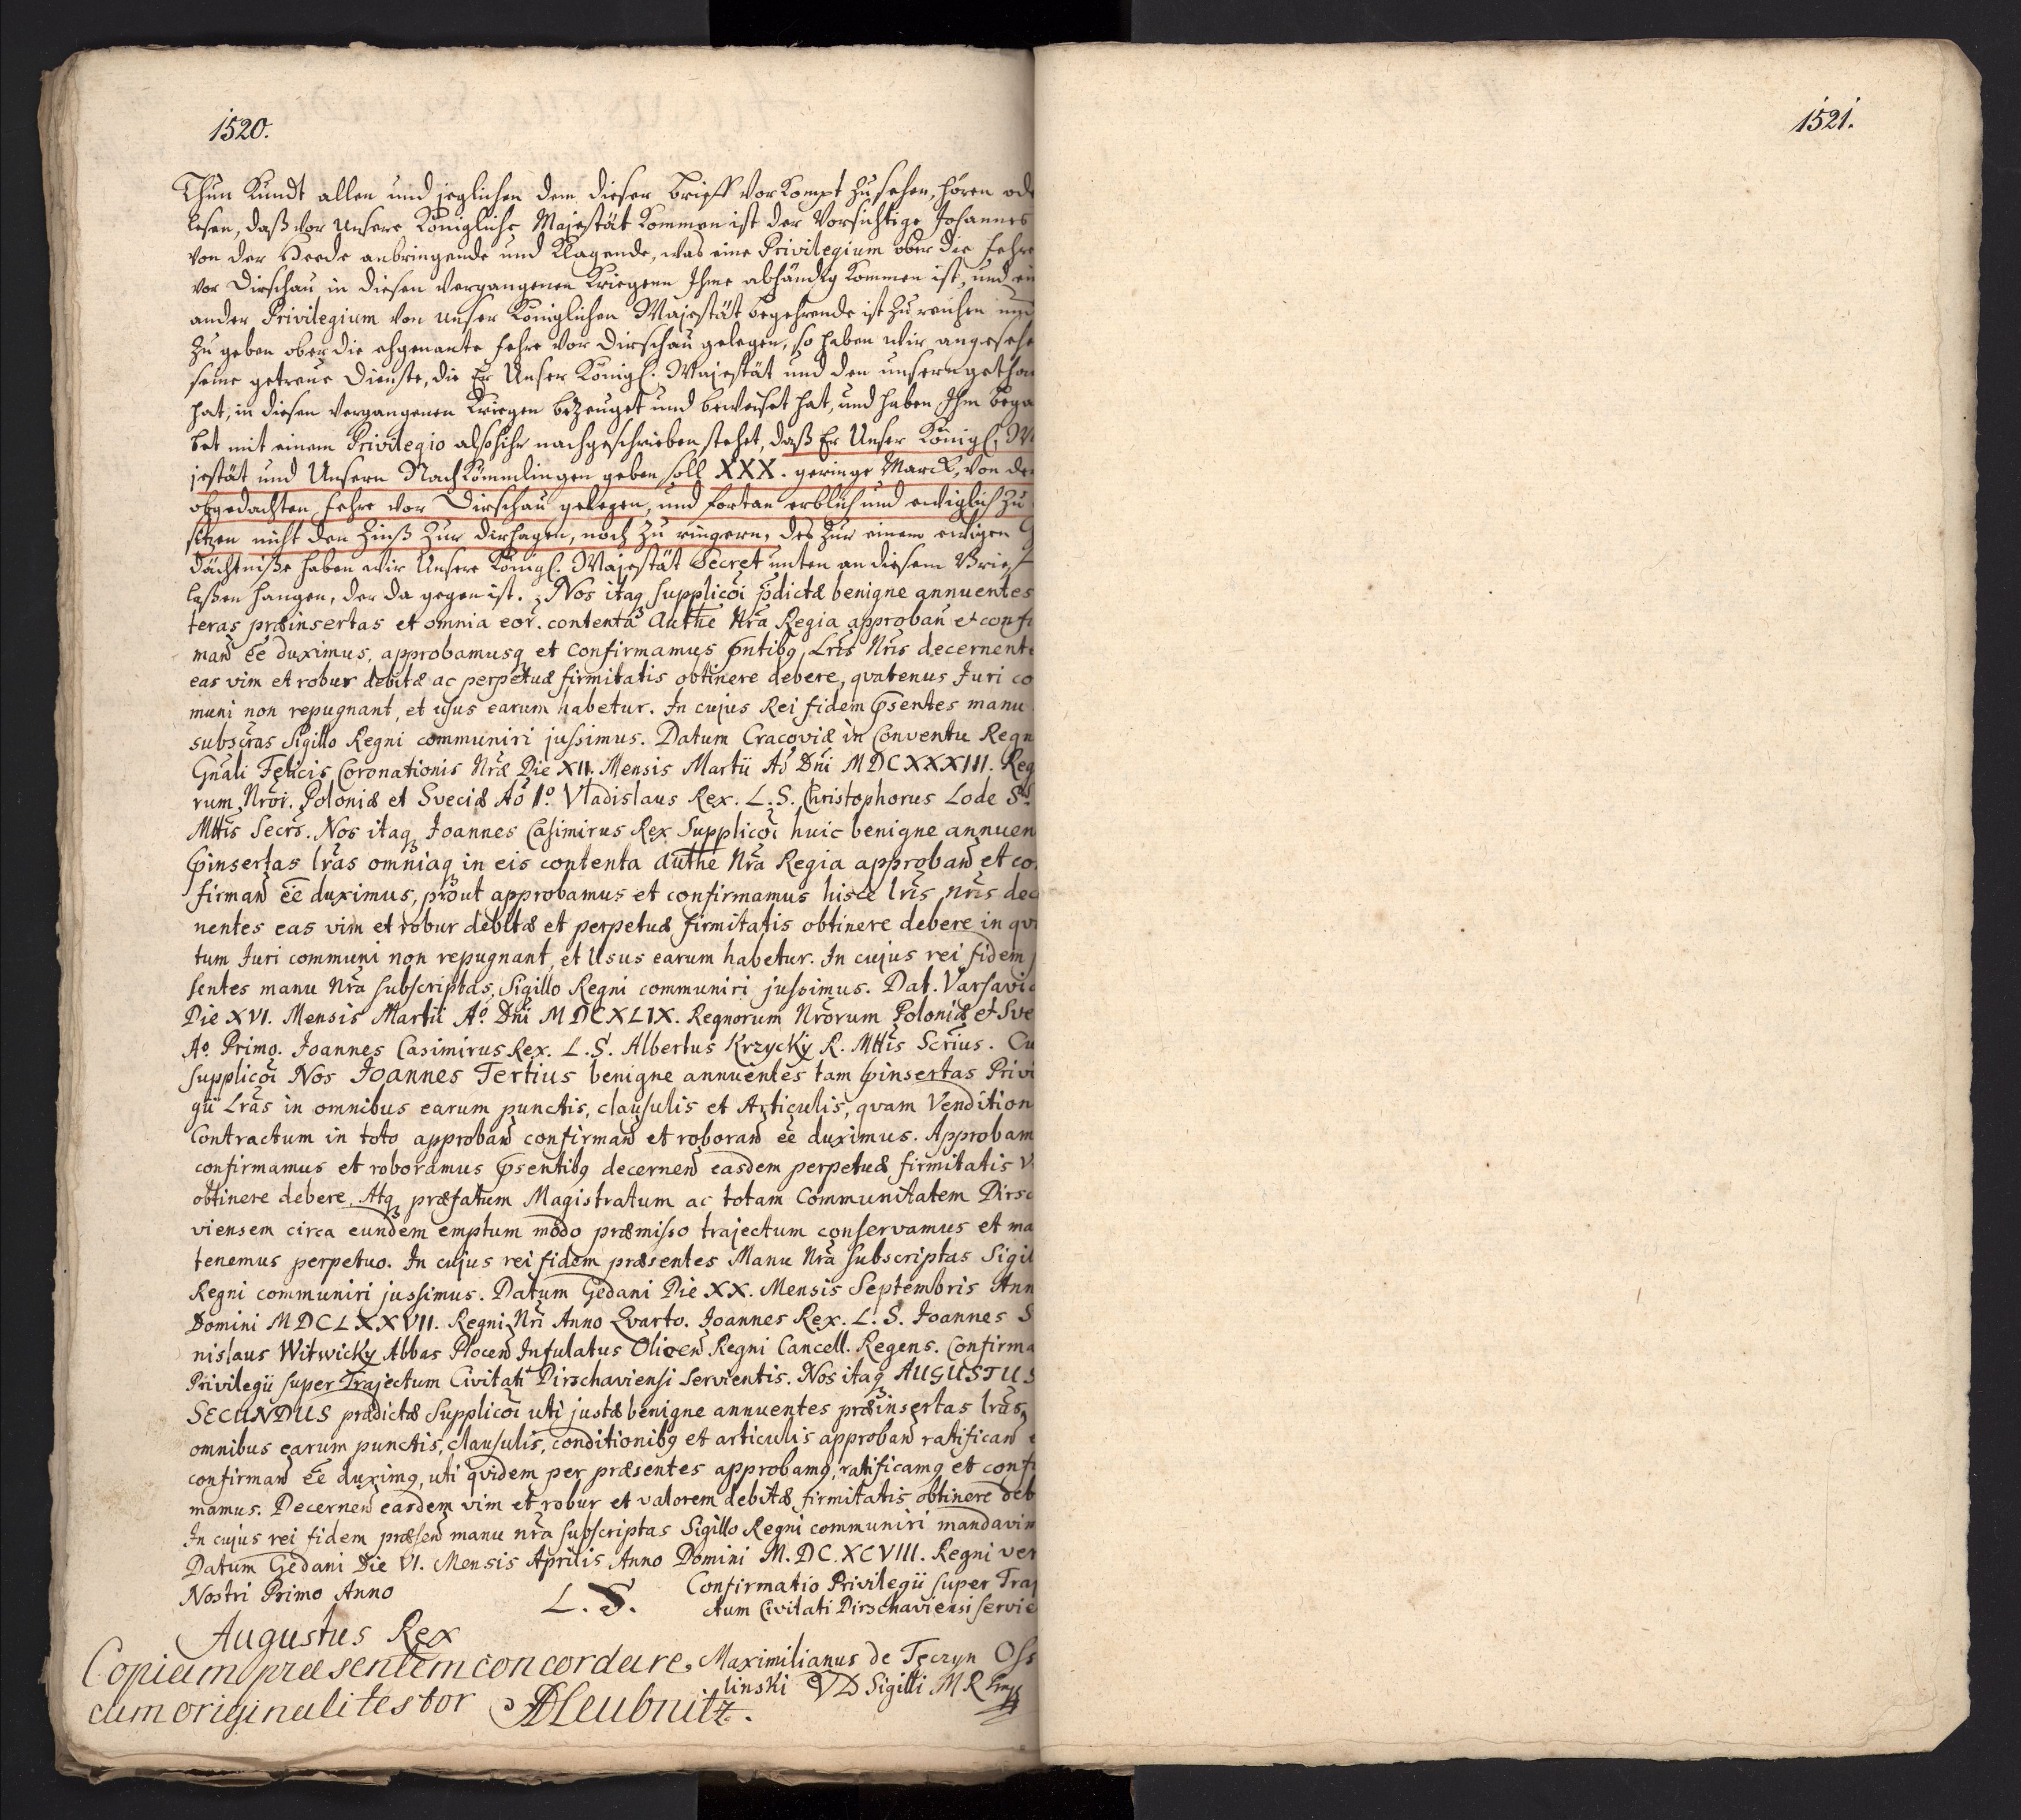 1520.
Thun Kundt allen und jeglichen dem dieser brieff vor kompt zu sehen, hören ode
lesen, daß vor unsere Königliche Majestät kommen ist der Vorsichtige Johannes
von der Heede anbringende und klagende, was eine Privilegium ober die fehre
vor Dirschau in diesen vergangenen Kriegenn Ihme abhändig kommen ist, und ein
ander Privilegium von unser Königlichen Majestät begehrende ist zu reichen und
zu geben ober die ehgenante fehre vor Dirschau gelegen, so haben wir angesehe
seine getreue Dienste, die Er Unser Königl. Majestät und den unsern gethan
hat, in diesen vergangenen Kriegen bezeuget und beweiset hat, und haben Ihm bega
bet mit einem Privilegio also hihr nachgeschrieben stehet, daß Er Unser Königl. M
jestät und Unsern Nachkömmlingen geben soll XXX. geringe Marck, von der
obgedachten fehre vor Dirschau gelegen, und fortan erblich und ewiglich zu
sitzen nicht den Zinß zur dirhagen, noch zu ringern, des zur einem ewigen G
dächtniße haben wir Unsere Königl. Majestät Secret unten an diesem Brief
laßen hangen, der da gegen ist. Nos itaq supplicõi p̃dictæ benigne annuentes
teras præinsertas et omnia eor. contenta Authẽ Nr̃a Regia approban̄ et confi
man̄ ẽe duximus, approbamusq et confirmamus p̃ntibꝯ Lr̃is Nr̃is decernente
eas vim et robur debitæ ac perpetuæ firmitatis obtinere debere, qvatenus Juri co
muni non repugnant, et usus earum habetur. In cujus Rei fidem p̃sentes manu
subscr̃as Sigillo Regni communiri jussimus. Datum Cracoviæ in Conventu Regn
Gnãli Felicis Coronationis Nr̃æ Die XII. Mensis Martii Aõ Dñi MDCXXXIII. Reg
rum Nrõr. Poloniæ et Sveciæ Aõ 1º. Vladislaus Rex. L.S. Christophorus Lode S.
Mttis Secrs̃. Nos itaq Joannes Casimirus Rex Supplicõi huic benigne annuen
p̃insertas lr̃as omniaq in eis contenta Authẽ Nr̃a Regia approban̄ et co
firman̄ ẽe duximus, prout approbamus et confirmamus hisce lr̃is nr̃is dec
nentes eas vim et robur debitæ et perpetuæ firmitatis obtinere debere in qva
tum Juri communi non repugnant, et Usus earum habetur. In cujus rei fidem p
sentes manu Nr̃a subscriptas, Sigillo Regni communiri jussimus. Dat. Varsavia
Die XVI. Mensis Martii Aº. Dñi MDCXLIX. Regnorum Nrõrum Poloniæ et Sve
Aº. Primo. Joannes Casimirus Rex. L.S. Albertus Krzycky R. Mttis Scrius. Cu
supplicõi Nos Joannes Tertius benigne annuentes tam p̃insertas Privi
gii Lr̃as in omnibus earum punctis, clausulis et Articulis, qvam Vendition
Contractum in toto approban̄ confirman̄ et roboran̄ ẽe duximus. Approbam
confirmamus et roboramus p̃sentibꝯ decernen̄ easdem perpetuæ firmitatis v
obtinere debere. Atq præfatum Magistratum ac totam Communitatem Dirsc
viensem circa eundem emptum modo præmisso trajectum conservamus et ma
tenemus perpetuo. In cujus rei fidem præsentes Manu Nr̃a subscriptas Sigil
Regni communiri jussimus. Datum Gedani Die XX. Mensis Septembris Ann
Domini MDCLXXVII. Regni Nr̃i Anno Qvarto. Joannes Rex. L.S. Joannes S
nislaus Witwicky Abbas Plocen̄ Infulatus Olicen̄ Regni Cancell. Regens. Confirma
Privilegii super Trajectum Civitati Dirschaviensi Servientis. Nos itaq AUGUSTUS
SECUNDUS prædictæ Supplicõi uti justæ benigne annuentes præinsertas lr̃as
omnibus earum punctis, clausulis, conditionibꝯ et articulis approban̄ ratifican̄ e
confirman̄ ẽe duximꝯ, uti qvidem per præsentes approbamꝯ, ratificamꝯ et confi
mamus. Decernen̄ easdem vim et robur et valorem debitæ firmitatis obtinere deb
In cujus rei fidem præsen̄ manu nr̃a subscriptas Sigillo Regni communiri mandavim
Datum Gedani Die VI. Mensis Aprilis Anno Domini M.DC.XCVIII. Regni ver
Nostri Primo Anno L.S. Confirmatio Privilegii super Traj
ctum Civitati Dirschaviensi servie
Augustus Rex
Copiam præsentem concordare, Maximilianus de Tęczyn Oss
cum originali testor linski VD Sigilli M R
1521.